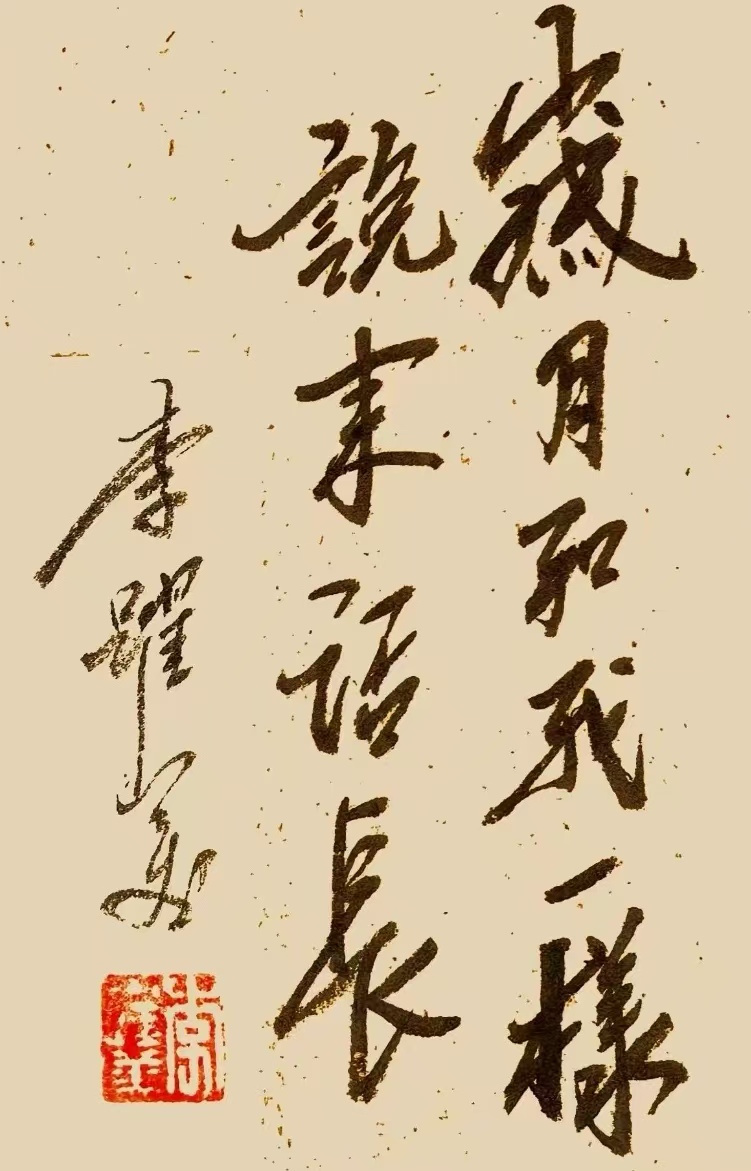 歲月和我一樣
說來話長
李躍